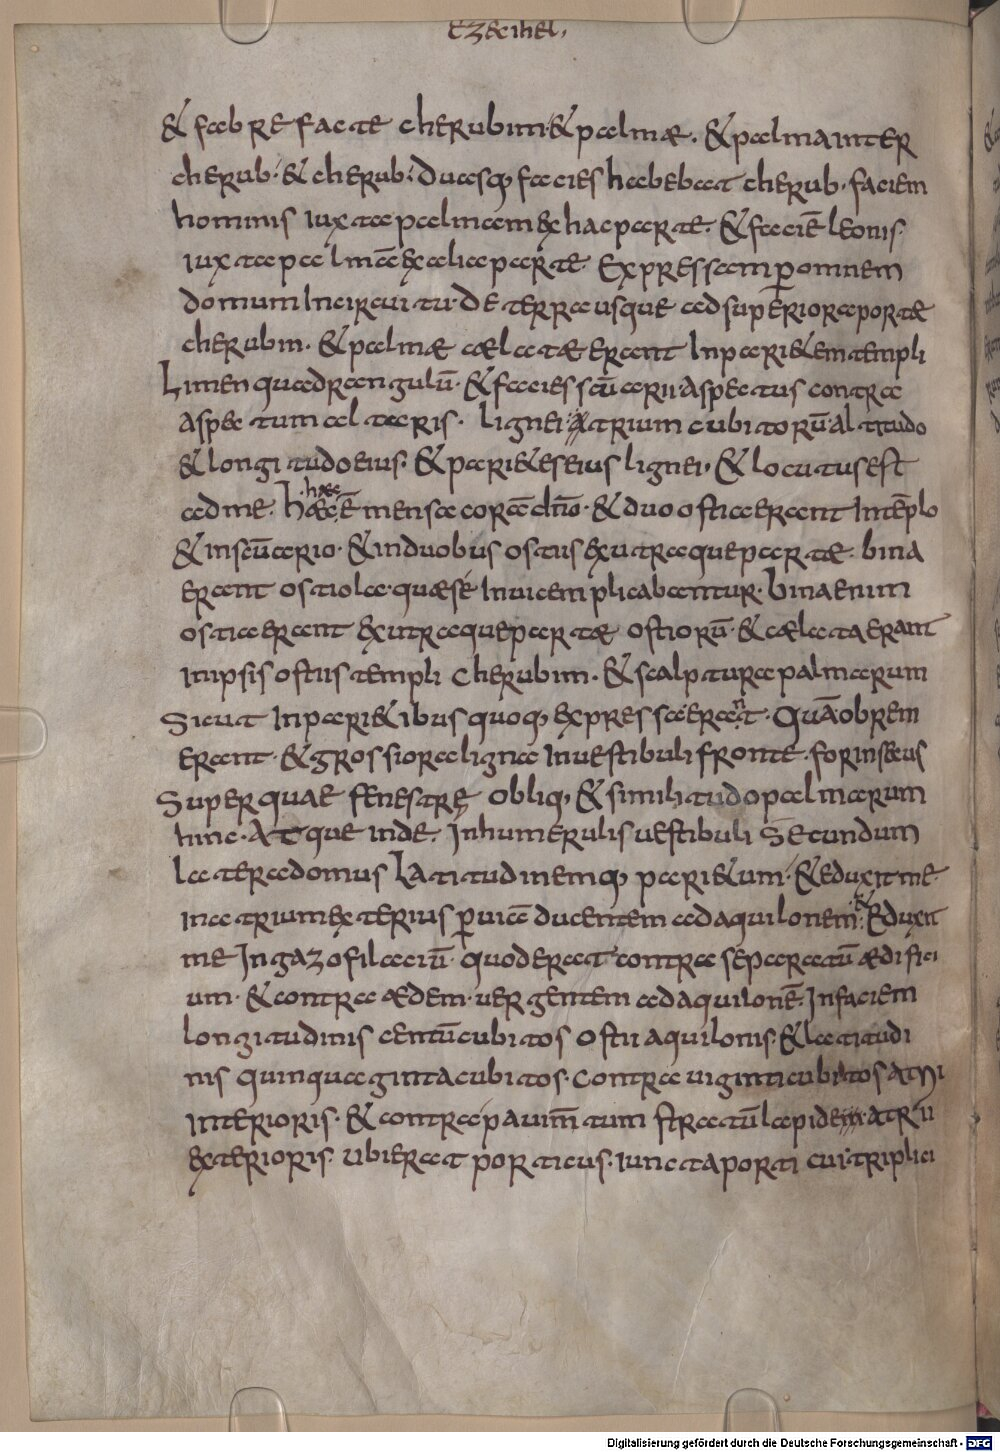 Ezechiel,
& fabrefacte cherubim·&palmæ. &palma inter
cherub·& cherub·duasq; facies habebat cherub·faciem
hominis iuxta palmam ex hac parte·&faciē leonis·
iuxta palmā ex alia parte· expressam p̄ omnem
domum In circuitu·de terra usque ad superiora portæ
cherubin·&palmæ cælatæ erant In pari&em templi
Limen quadrangulū·&facies scūarii·aspectus contra
aspectum altaris· lignei trium cubitorū·altitudo
&longitudo eius·&pari&es eius lignei·&locutus est
ad me. hæc ē mensa coram dno·&duo ostia erant In tēplo
&in scūario·&in duobus ostiis ex utraque parte· bina
erant ostiola·quæ se Inuicem plicabantur·bina enim
ostia erant ex utraque partæ ostiorū·&cælata erant
in ipsis ostiis templi cherubim·&scalpturæ palmarum
Sicut In pari&ibus quoq; expressa erant·Quāobrem
erant·&grossiora ligna In uestibuli fronte·forinsecus
Super quae fenestrę obliq;&similitudo palmarum
hinc·Atque inde. In humerulis uestibuli Secundum
latera domus Latitudinemq; pari&um·&eduxit me
in atrium exterius p̄ uiā ducentem ad aquilonem·& eduxit
me In gazofilaciū·quod erat contra separatū ædifici
um·&contra ædem·uergentem ad aquilonē. In faciem
longitudinis centū cubitos ostii aquilonis·&latitudi
nis quinquaginta cubitos·contra uiginti cubitos atrii
interioris·&contra pauim̄tum stratū lapide atrii
exterioris·ubi erat porticus·iuncta porticui triplici
Digitalisierung gefördert durch die Deutsche Forschungsgemeinschaft - DFG